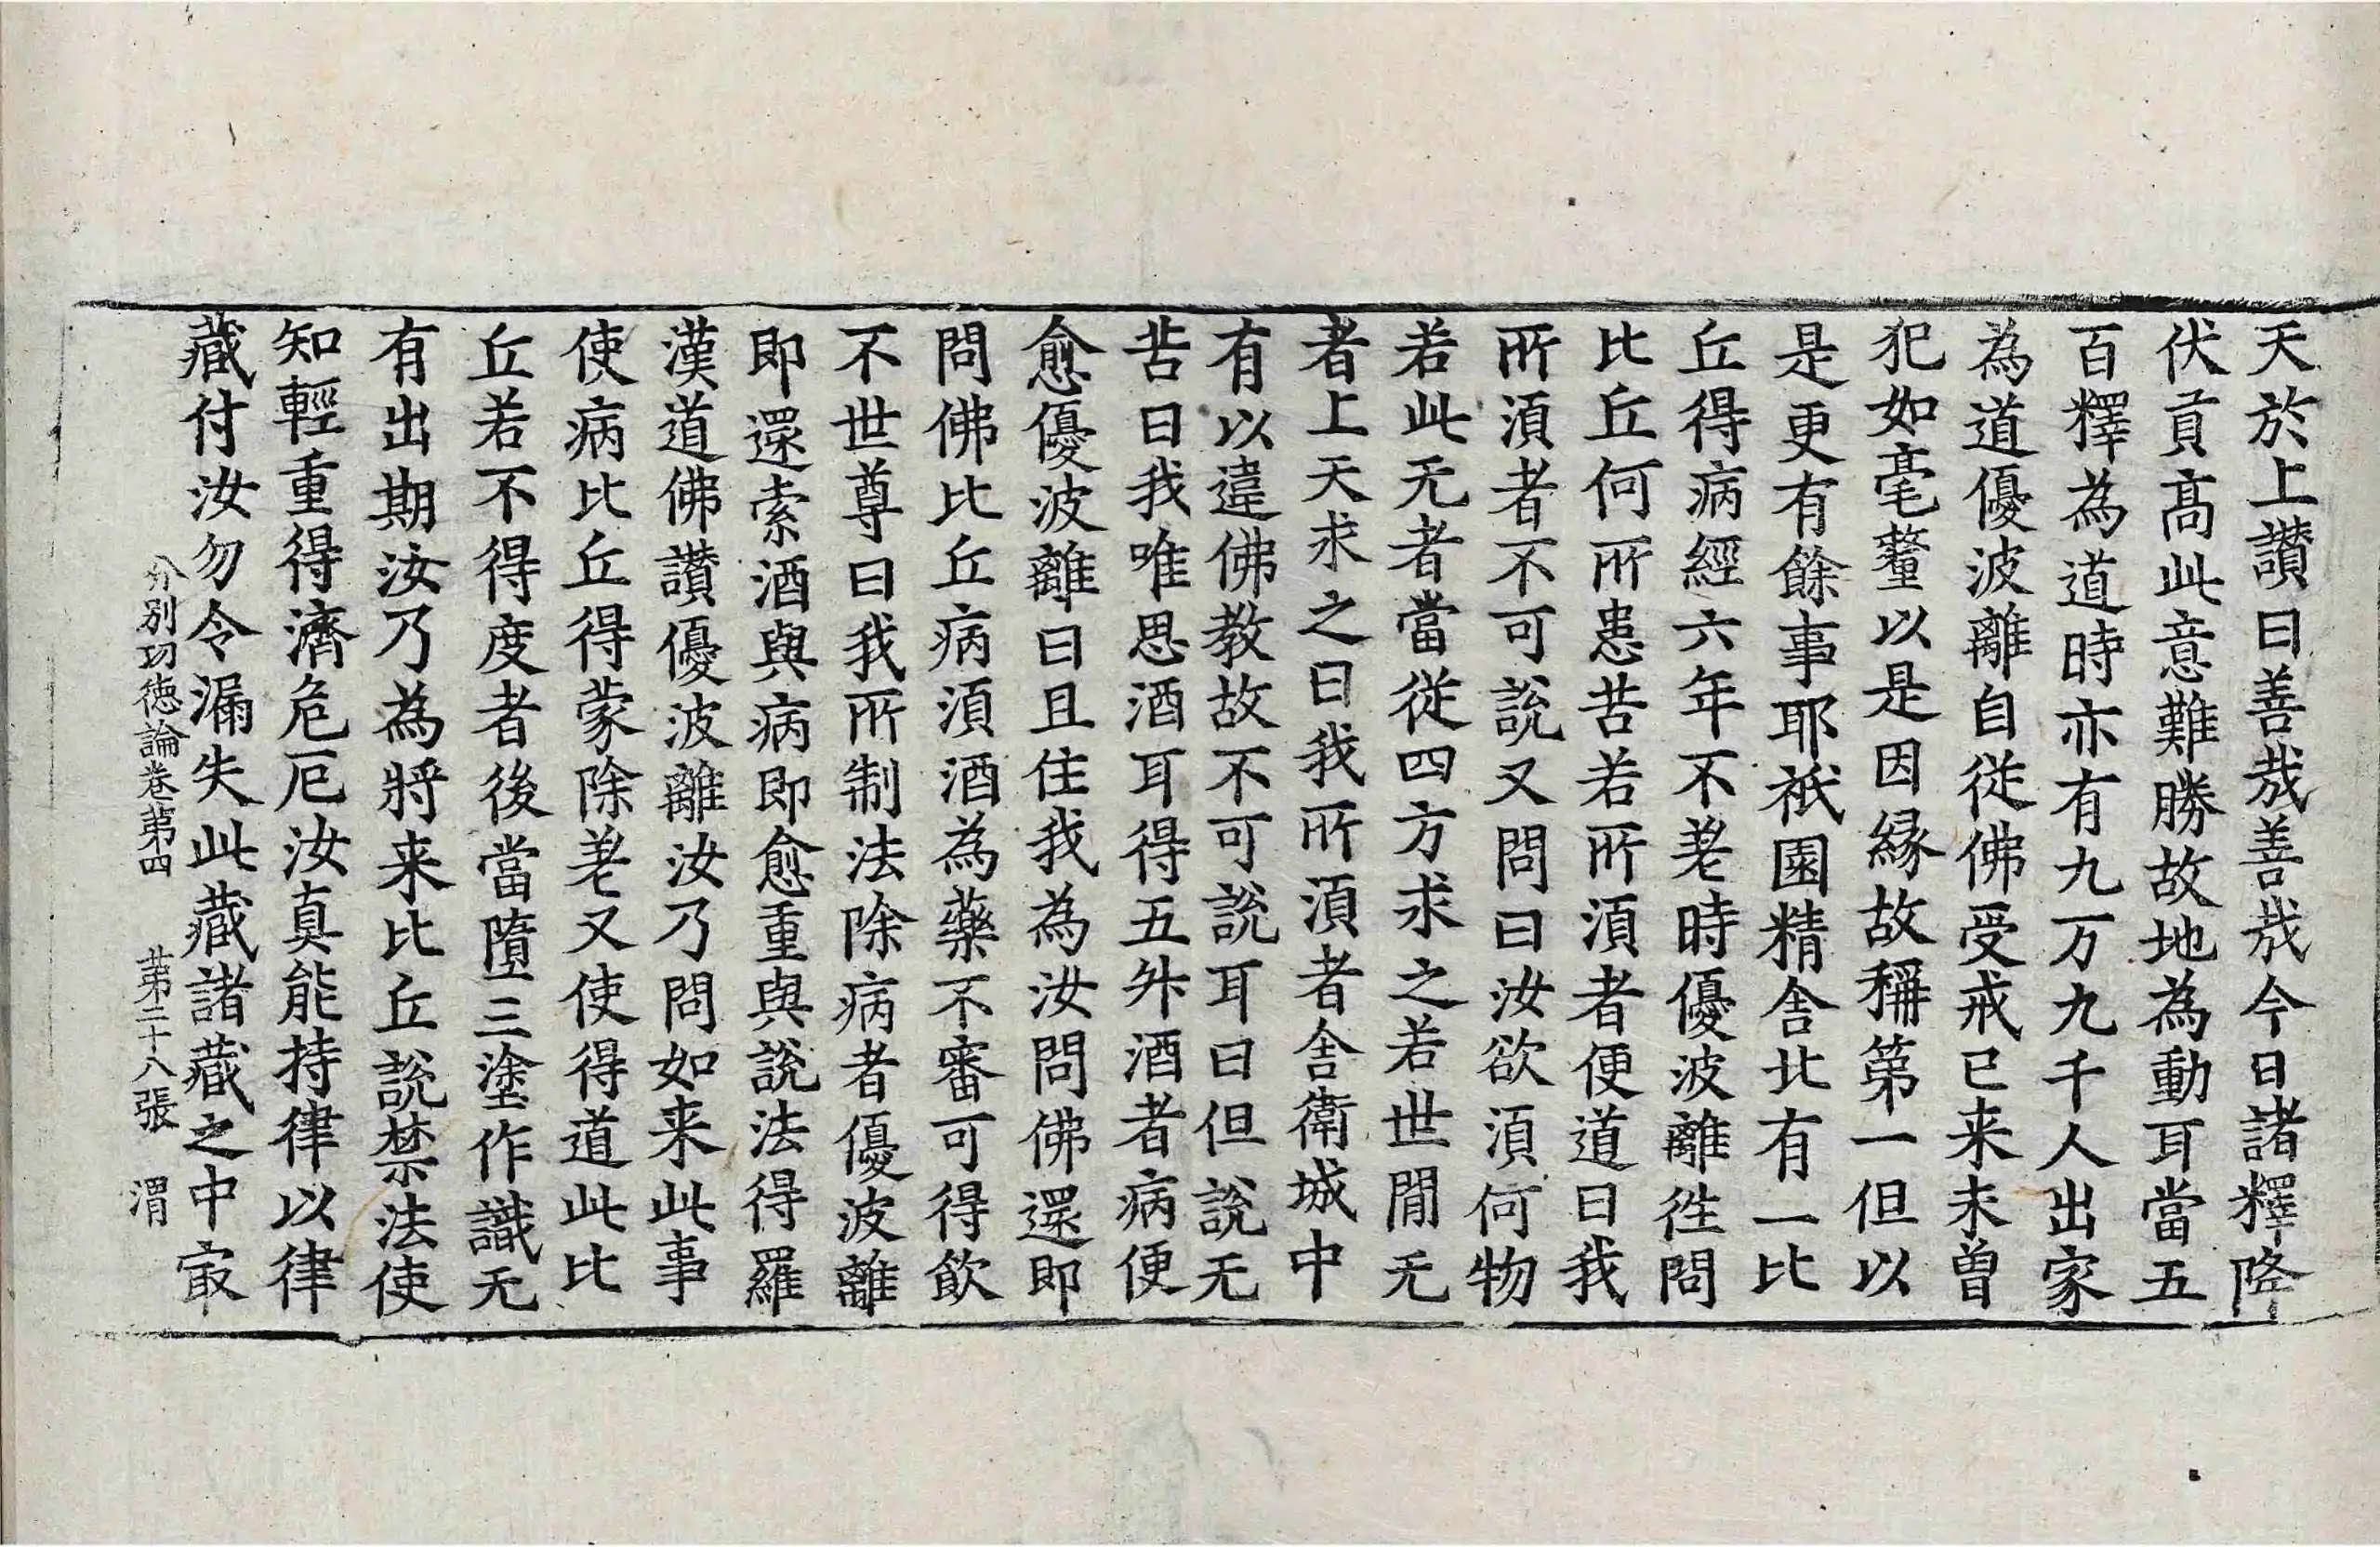 天於上讃曰善㢤善㢤今日諸釋降
伏貢髙此意難勝故地為動耳當五
百釋為道時亦有九万九千人出家
為道優波離自從佛受戒已来未曾
犯如毫釐以是因縁故稱第一但以
是更有餘事耶祇園精舎北有一比
丘得病經六年不差時優波離徃問
比丘何所患苦若所湏者便道曰我
所湏者不可說又問曰汝欲湏何物
若此无者當從四方求之若世閒无
者上天求之曰我所湏者舎衛城中
有以違佛教故不可說耳曰但說无
苦曰我唯思酒耳得五升酒者病便
愈優波離曰且住我為汝問佛還即
問佛比丘病湏酒為藥不審可得飲
不世尊曰我所制法除病者優波離
即還索酒與病即愈重與說法得羅
漢道佛讃優波離汝乃問如来此事
使病比丘得蒙除差又使得道此比
丘若不得度者後當墮三塗作識无
有出期汝乃為將来比丘說禁法使
知輕重得濟危厄汝真能持律以律
藏付汝勿令漏失此藏諸藏之中㝡
分別功德論卷苐四　苐二十八張　渭